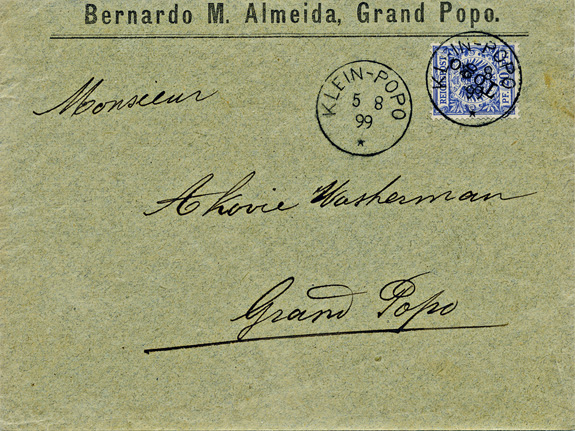 Bernardo M. Almeida, Grand Popo.
KLEIN-POPO
5 8
99
*
KLEIN-POPO
8
99
*
REICHSPOST
PF
Monsieur
Akovie Washerman
Grand Popo